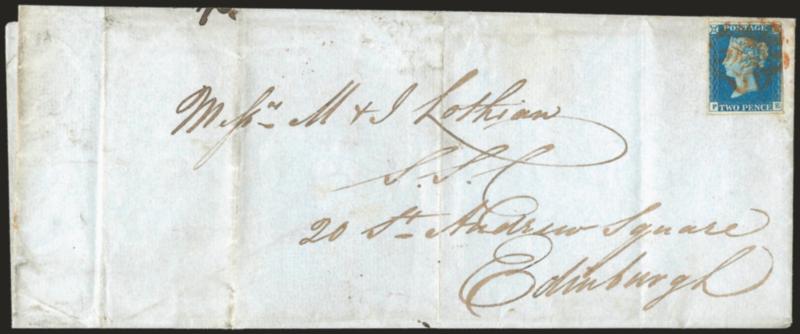 POSTAGE
TWO PENCE
Messrs M & J Lothian
S.S.C
20 St Andrew Square
Edinburgh